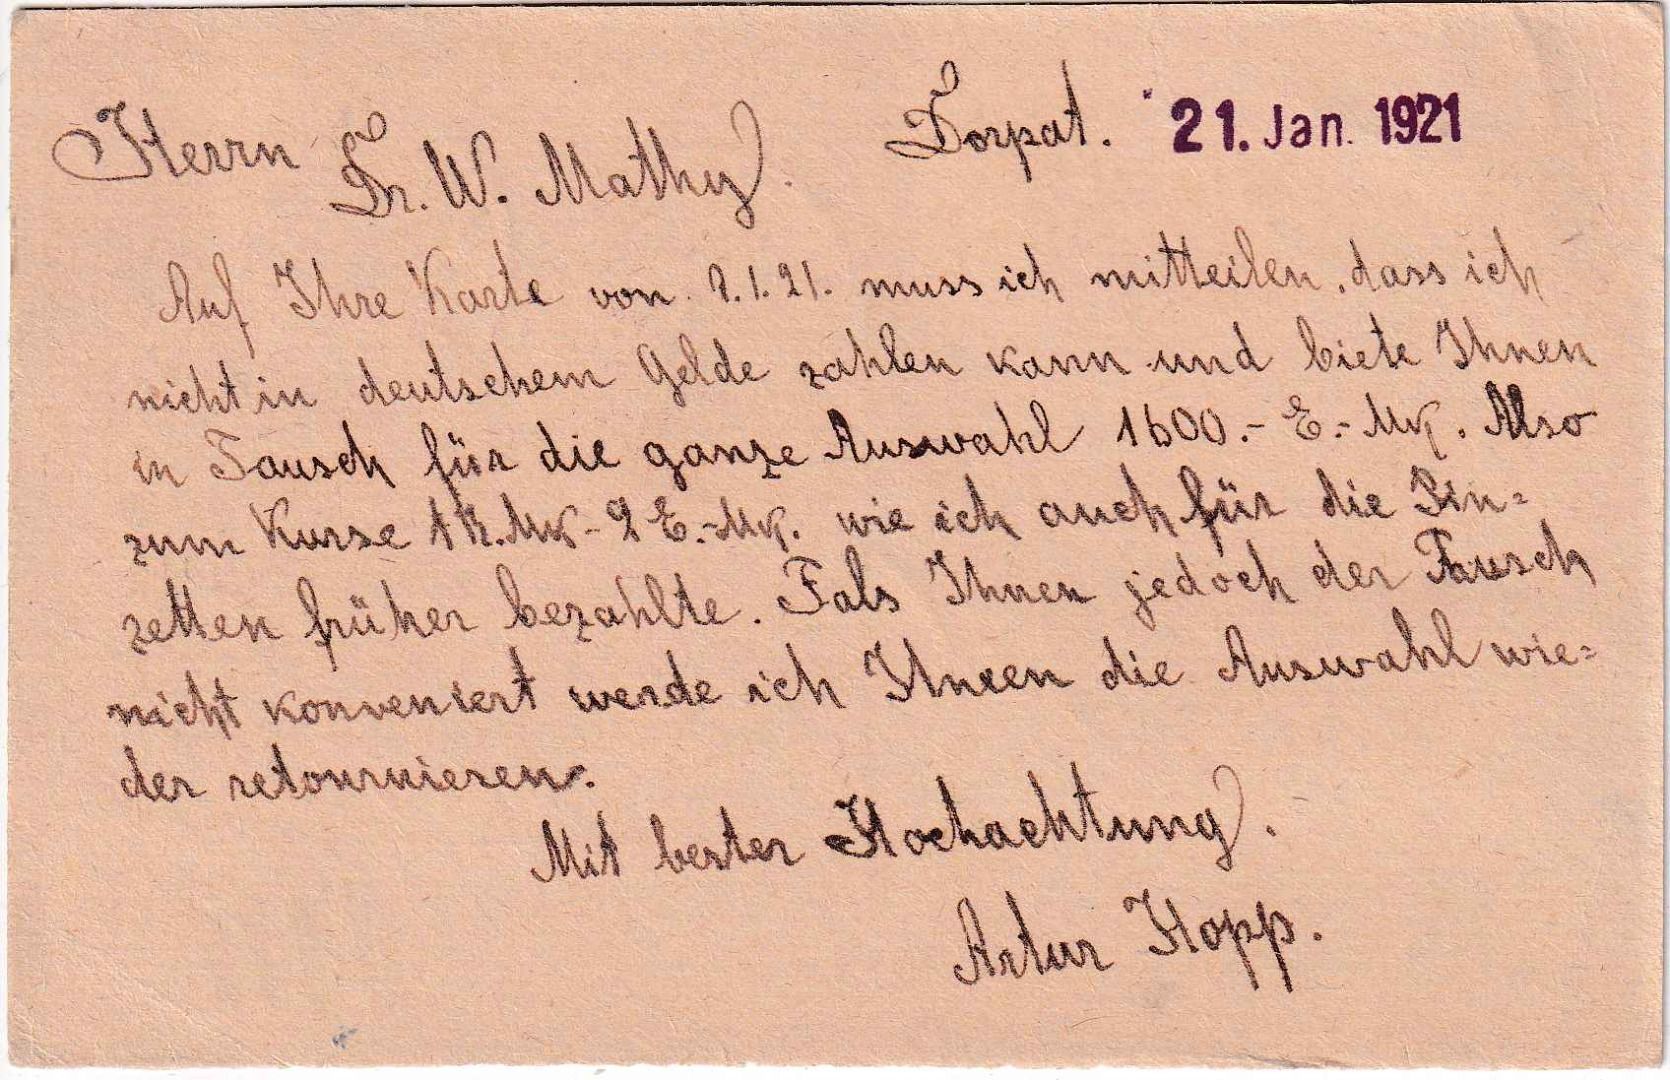 Herrn Dr. W. Mathy. Dorpat. 21. Jan. 1921
Auf Ihre Karte von 2.1.21. muss ich mitteilen, dass ich
nicht in deutschem Gelde zahlen kann und biete Ihnen
in Tausch für die ganze Auswahl 1600.- E.-Mk. Also
zum Kurse 1 R.Mk - 2 E.-Mk. wie ich auch für die Pin=
zetten früher bezahlte. Fals Ihnen jedoch der Tausch
nicht konveniert werde ich Ihneen die Auswahl wie=
der retournieren.
Mit bester Hochachtung.
Artur Hopp.